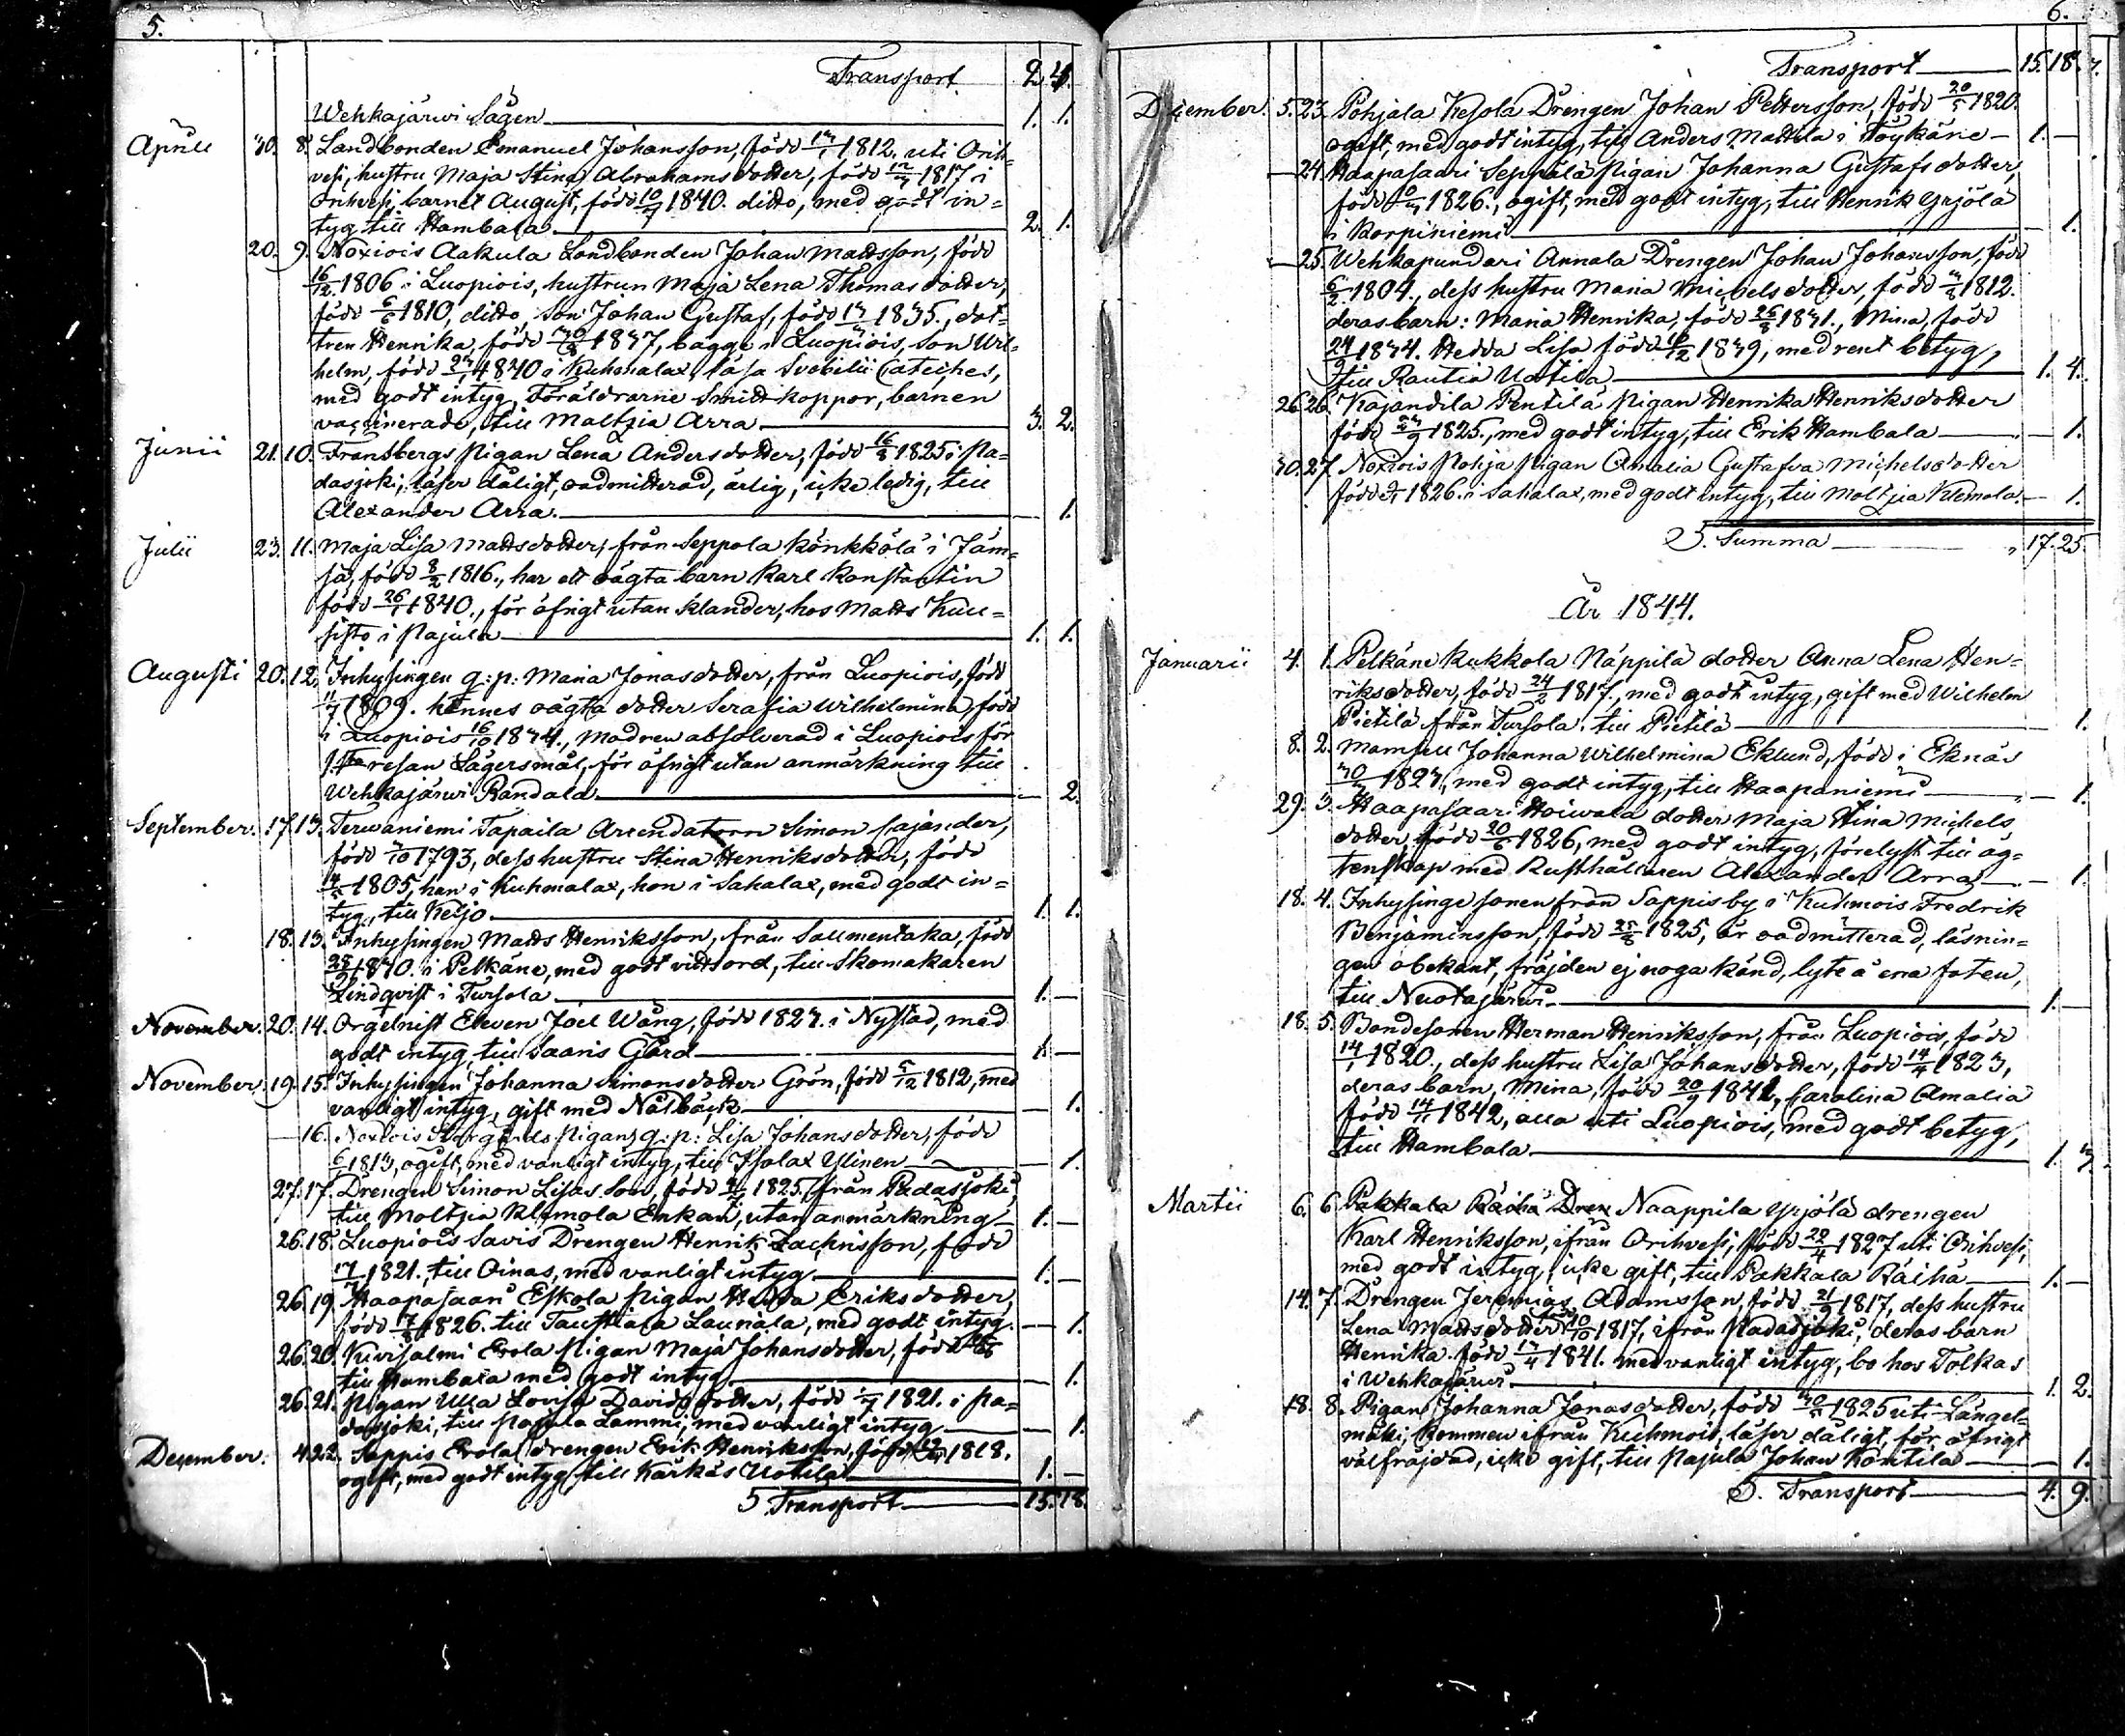 5.
Transport 2. 4.
Wehkajärwi Sågen 1. 1.
Aprill 30. 8. Landbonden Emanuel Johansson, född 1812. uti Orih=
vesi, hustru Maja Stina Abrahamsdotter, född 12/3 1817 i
Orihvesi, barnet August, född 1840. ditto, med godt in=
tyg till Hambala. 2. 1.
20. 9. Noxiois Aakula Landbonden Johan Mattsson, född
16/12 1806 i Luopiois, hustrun Maja Lena Thomasdotter,
född 1810, ditto, son Johan Gustaf, född 1835., dot=
tren Henrika, född 1837, bägge i Luopiois, son Wil=
helm, född 1840 i Kuhmalax, läsa Svebilii Cateches,
med godt intyg, Föräldrarne Smittkoppor, barnen
vaccinerade, till Maltzia Arra 3. 2.
Junii 21. 10. Fransbergs Pigan Lena Andersdotter, född 16/8 1825 i Pa=
dasjoki, läser dåligt, oadmitterad, ärlig, icke ledig, till
Alexander Arra. 1.
Julii 23. 11. Maja Lisa Mattsdotter, från Seppola Könkkölä i Jäm=
sä, född 8/2 1816., har ett oägta barn Karl Konstantin
född 26/1 1840., för öfrigt utan klander, hos Matts Kuu=
sisto i Pajula 1. 1.
Augusti 20. 12. Inhysingen q: p: Maria Jonasdotter, från Luopiois, född
11/7 1809. hennes oägta dotter Serafia Wilhelmina, född
i Luopiois 16/10 1834., modren absolverad i Luopiois för
1.sta resan Lägersmål, för öfrigt utan anmärkning till
Wehkajärwi Randala — 2.
September. 17. 13. Terwaniemi Tapaila Arrendatorn Simon Pajander,
född 1793, dess hustru Stina Henriksdotter, född
1805, han i Kuhmalax, hon i Sahalax, med godt in=
tyg, till Keljo. 1. 1.
18. 13. Inhysingen Matts Henriksson, från Saumentaka, född
i Pelkäne, med godt vittsord, till Skomakaren
Lindqvist i Tursola 1. —
November. 20. 14. Orgelnist Eleven Joel Wång, född 1823. i Nystad, med
godt intyg, till Saaris Gård 1. —
November. 19. 15. Inhysingen Johanna Simonsdotter Grön, född 5/12 1812, med
vanligt intyg, gift med Nålbäck — 1.
— 16. Noxiois Storgårds Pigan q: p: Lisa Johansdotter, född
1813, ogift, med vanligt intyg, till Isolax Ylinen — 1.
27. 17. Drengen Simon Lisas Son, född 1825 från Padasjoki,
till Moltzia Klemola Enkan, utan anmärkning 1. —
26. 18. Luopiois Savis Drengen Henrik Zachrisson, född
1821. till Oinas, med vanligt intyg 1. —
26. 19. Haapasaari Eskola Pigan Eriksdotter,
född 17/8 1826. till Taustiala Launala, med godt intyg. — 1.
26. 20. Kivisalmi Erola Pigan Maja Johansdotter, född
till Hambala med godt intyg — 1.
26. 21. Pigan Ulla Lovisa Davidsdotter, född 1821. i Pa=
dasjoki, till Pajula Lammi, med vanligt intyg — 1.
December. 4. 22. Sappis Erola drengen Erik Henriksson, född 1818.
ogift, med godt intyg till Kärkäs Uotila 1. —
S Transport 15. 18.
6.
Transport 15. 18.
December. 5. 23. Pohjala Kesola Drengen Johan Pettersson, född 20/5 1820.
ogift, med godt intyg, till Anders Mattila i Töykäne 1. —
— 24. Haapasaari Seppälä Pigan Johanna Gustafsdotter,
född 1826., ogift, med godt intyg, till Henrik Yrjölä
i Korpiniemi 1.
— 25. Wehkapundari Annala Drengen Johan Johansson, född
6/2 1804., dess hustru Maria Michelsdotter, född 1812.
deras barn: Maria Henrika, född 1831., Mina, född
1834. Hedda Lisa född 1839, med rent betyg,
till Rautia Uotila 1. 4.
26. 26. Kajandila Penttilä Pigan Henrika Henriksdotter
född 1825., med godt intyg, till Erik Hambala — 1.
30. 27. Noxiois Pohja Pigan Amalia Gustafva Michelsdotter
född 1826. i Sahalax, med godt intyg, till Moltzia Klemola. — 1.
S. Summa 17. 25.
År 1844.
Januarii 4. 1. Pelkäne Kukkola Näppilä dotter Anna Lena Hen=
riksdotter, född 24/2 1817., med godt intyg, gift med Wilhelm
Pietilä från Tursola, till Pietilä 1.
8. 2. Mamsell Johanna Wilhelmina Eklund, född i Ekenäs
1823, med godt intyg, till Haapaniemi — 1.
29. 3. Haapasaari Hoiwala dotter Maja Stina Michels
dotter, född 1826, med godt intyg, förelyst till äg=
tenskap med Rusthållaren Alexander Arra — 1.
18. 4. Inhysingesonen från Sappisby i Kuhmois Fredrik
Benjaminsson, född 1825, är oadmitterad, läsnin=
gen obekant, fräjden ej noga känd, lyte å ena foten,
till Nuotajärwi 1. —
18. 5. Bondesonen Herman Henriksson, från Luopiois, född
14/1 1820., dess hustru Lisa Johansdotter, född 14/4 1823,
deras barn, Mina, född 1841, Carolina Amalia
född 14/11 1842, alla uti Luopiois, med godt betyg,
till Hambala 1. 3.
Martii 6. 6 Pakkala Räihä Dren Naappila Yrjölä drengen
Karl Henriksson, ifrån Orihvesi, född 28/4 1827 uti Orihvesi,
med godt intyg, icke gift, till Pakkala Räihä 1. —
14. 7. Drengen Jeremias Adamsson, född 21/9 1817, dess hustru
Lena Mattsdotter 10/10 1817, ifrån Padasjoki, deras barn
Henrika född 1841. med vanligt intyg, bo hos Tolkas
i Wehkajärwi 1. 2.
18. 8. Pigan Johanna Jonasdotter, född 1825 uti Längel=
mäki, kommen ifrån Kuhmois, läser dåligt, för öfrigt
välfräjdad, icke gift, till Pajula Johan Konttila — 1.
S. Transport 4. 9.